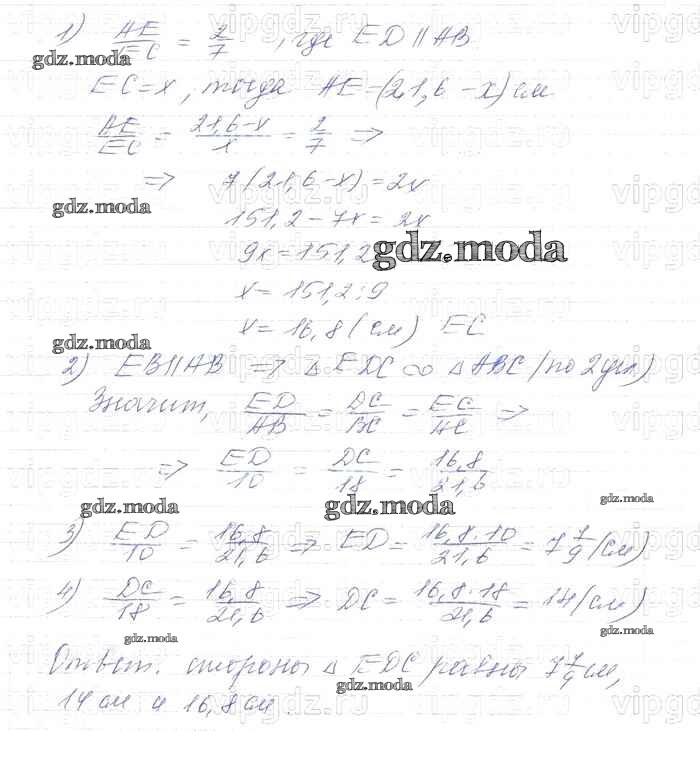 1) AE/EC = 2/7 , где ED || AB
gdz.moda
EC = x , тогда AE = (21,6 - x) см
AE/EC = (21,6 - x)/x = 2/7 =>
=> 7(21,6 - x) = 2x
gdz.moda
151,2 - 7x = 2x
9x = 151,2
gdz.moda
x = 151,2 : 9
x = 16,8 (см) EC
gdz.moda
2) EB || AB => △ EDC ∽ △ ABC (по 2 угл)
Значит, ED/AB = DC/BC = EC/AC =>
=> ED/10 = DC/18 = 16,8/21,6
gdz.moda gdz.moda gdz.moda
3) ED/10 = 16,8/21,6 => ED = 16,8 · 10/21,6 = 7 7/9 (см)
4) DC/18 = 16,8/21,6 => DC = 16,8 · 18/21,6 = 14 (см)
gdz.moda gdz.moda
Ответ. стороны △ EDC равны 7 7/9 см,
gdz.moda
14 см и 16,8 см.